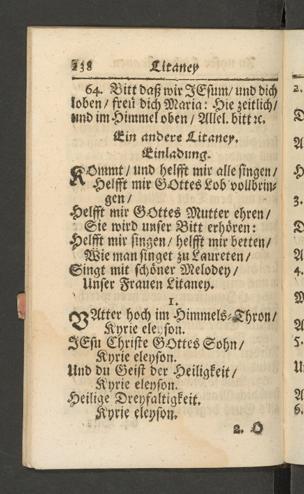 238 Litaney
64. Bitt daß wir JEsum/ und dich
loben/ freu dich Maria: Hie zeitlich/
und im Himmel oben/ Allel. bitt ꝛc.
Ein andere Litaney.
Einladung.
KOmmt/ und helfft mir alle singen/
Helfft mir GOttes Lob vollbrin-
gen/
Helfft mir GOttes Mutter ehren/
Sie wird unser Bitt erhören:
Helfft mir singen/ helfft mir betten/
Wie man singet zu Laureten/
Singt mit schöner Melodey/
Unser Frauen Litaney.
1.
VAtter hoch im Himmels-Thron/
Kyrie eleyson.
JEsu Christe GOttes Sohn/
Kyrie eleyson.
Und du Geist der Heiligkeit/
Kyrie eleyson.
Heilige Dreyfaltigkeit.
Kyrie eleyson.
2. O